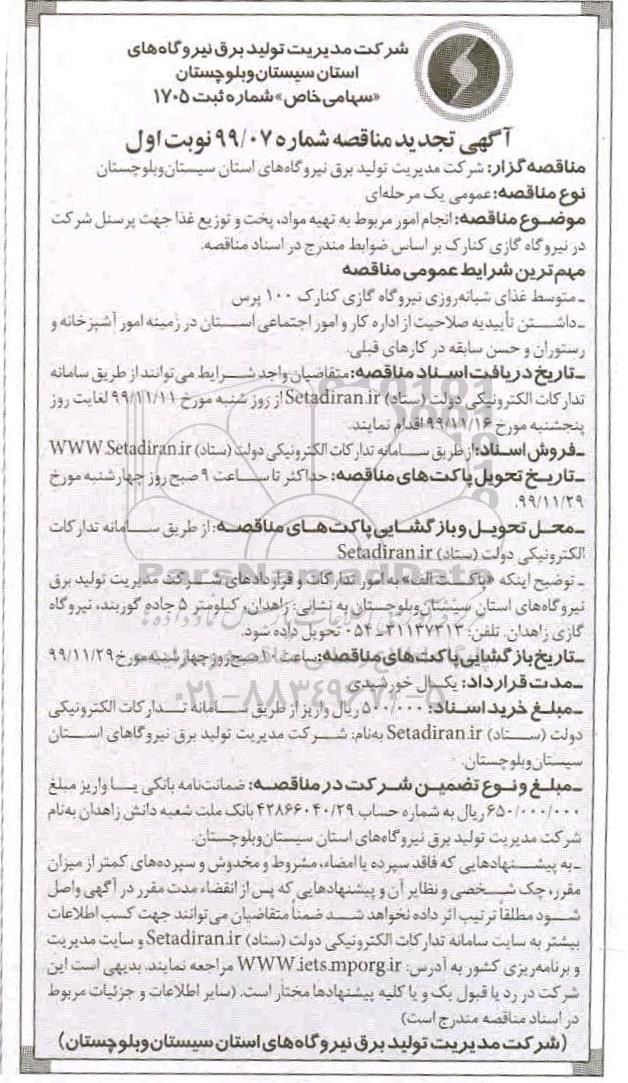 شرکت مدیریت تولید برق نیروگاه‌های
استان سیستان‌وبلوچستان
«سهامی خاص» شماره ثبت ۱۷۰۵
آگهی تجدید مناقصه شماره ۹۹/۰۷ نوبت اول
مناقصه گزار: شرکت مدیریت تولید برق نیروگاه‌های استان سیستان‌وبلوچستان
نوع مناقصه: عمومی یک مرحله‌ای
موضوع مناقصه: انجام امور مربوط به تهیه مواد، پخت و توزیع غذا جهت پرسنل شرکت
در نیروگاه گازی کنارک بر اساس ضوابط مندرج در اسناد مناقصه.
مهم‌ترین شرایط عمومی مناقصه
ـ متوسط غذای شبانه‌روزی نیروگاه گازی کنارک ۱۰۰ پرس
ـ داشتن تأییدیه صلاحیت از اداره کار و امور اجتماعی استان در زمینه امور آشپزخانه و
رستوران و حسن سابقه در کارهای قبلی.
ـ تاریخ دریافت اسناد مناقصه: متقاضیان واجد شرایط می‌توانند از طریق سامانه
تدارکات الکترونیکی دولت (ستاد) Setadiran.ir از روز شنبه مورخ ۹۹/۱۱/۱۱ لغایت روز
پنجشنبه مورخ ۹۹/۱۱/۱۶ اقدام نمایند.
ـ فروش اسناد: از طریق سامانه تدارکات الکترونیکی دولت (ستاد) WWW.Setadiran.ir
ـ تاریخ تحویل پاکت‌های مناقصه: حداکثر تا ساعت ۹ صبح روز چهارشنبه مورخ
۹۹/۱۱/۲۹.
ـ محل تحویل و بازگشایی پاکت‌های مناقصه: از طریق سامانه تدارکات
الکترونیکی دولت (ستاد) Setadiran.ir
ParsNamadData
ـ توضیح اینکه «پاکت الف» به امور تدارکات و قراردادهای شرکت مدیریت تولید برق
نیروگاه‌های استان سیستان‌وبلوچستان به نشانی: زاهدان، کیلومتر ۵ جاده گوربند، نیروگاه
گازی زاهدان. تلفن: ۳۱۱۳۷۳۱۳-۰۵۴ تحویل داده شود.
ـ تاریخ بازگشایی پاکت‌های مناقصه: ساعت ۱۰ صبح روز چهارشنبه مورخ ۹۹/۱۱/۲۹
ـ مدت قرارداد: یکسال خورشیدی
۰۲۱-۸۸۳۴۹۶۷۰-۵
ـ مبلغ خرید اسناد: ۵۰۰/۰۰۰ ریال واریز از طریق سامانه تدارکات الکترونیکی
دولت (ستاد) Setadiran.ir به‌نام: شرکت مدیریت تولید برق نیروگاهای استان
سیستان‌وبلوچستان.
ـ مبلغ و نوع تضمین شرکت در مناقصه: ضمانت‌نامه بانکی یا واریز مبلغ
۶۵۰/۰۰۰/۰۰۰ ریال به شماره حساب ۴۲۸۶۶۰۴۰/۲۹ بانک ملت شعبه دانش زاهدان به‌نام
شرکت مدیریت تولید برق نیروگاه‌های استان سیستان‌وبلوچستان.
ـ به پیشنهادهایی که فاقد سپرده یا امضاء، مشروط و مخدوش و سپرده‌های کمتر از میزان
مقرر، چک شخصی و نظایر آن و پیشنهادهایی که پس از انقضاء مدت مقرر در آگهی واصل
شود مطلقاً ترتیب اثر داده نخواهد شد ضمناً متقاضیان می‌توانند جهت کسب اطلاعات
بیشتر به سایت سامانه تدارکات الکترونیکی دولت (ستاد) Setadiran.ir و سایت مدیریت
و برنامه‌ریزی کشور به آدرس: WWW.iets.mporg.ir مراجعه نمایند. بدیهی است این
شرکت در رد یا قبول یک و یا کلیه پیشنهادها مختار است. (سایر اطلاعات و جزئیات مربوط
در اسناد مناقصه مندرج است)
(شرکت مدیریت تولید برق نیروگاه‌های استان سیستان‌وبلوچستان)